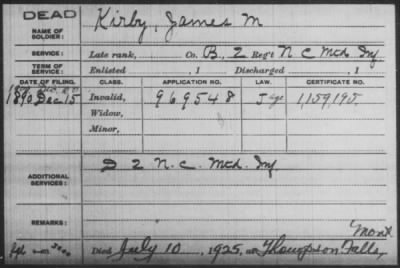 DEAD
NAME OF SOLDIER: Kirby, James M
SERVICE: Late rank, Co. B, 2 Reg't N C Mtd Inf
TERM OF SERVICE: Enlisted , 1 Discharged , 1
DATE OF FILING. CLASS. APPLICATION NO. LAW. CERTIFICATE NO.
1890 Dec 15 Invalid, 969548 1,159,195.
Widow,
Minor,
ADDITIONAL SERVICES: D 2 N.C. Mtd. Inf.
REMARKS:
Mont
Died July 10, 1925, at Thompson Falls,